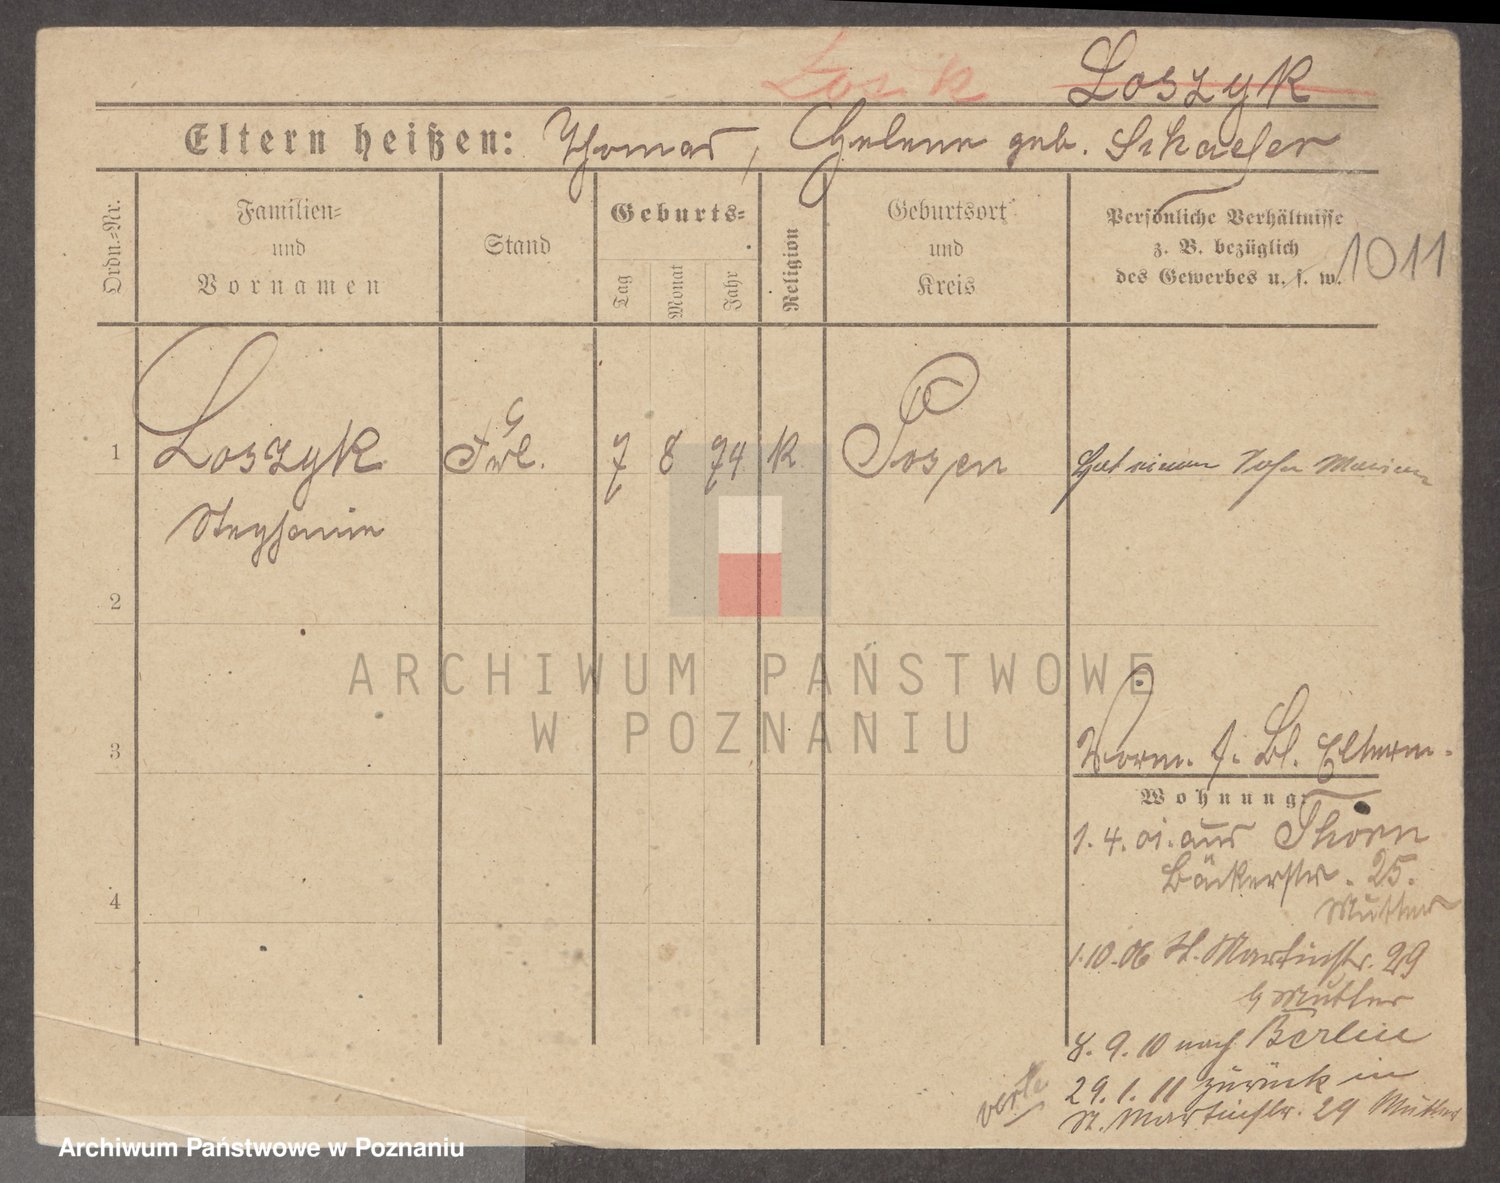 Losik Loszyk
Eltern heißen: Thomas, Helene geb. Schaefer
Ordn.-Nr.
Familien-
und
Vornamen
Stand
Geburts-
Tag
Monat
Jahr
Religion
Geburtsort
und
Kreis
Persönliche Verhältnisse
z. B. bezüglich
des Gewerbes u. s. w.
1011
1 Loszyk Frl. 7 8 74 K Posen Hat einen Sohn Marian
Stephanie
2
ARCHIWUM PAŃSTWOWE
W POZNANIU
3
Vorm. s. Bl. Eltern.
Wohnung:
1.4.01. aus Thorn
Bäckerstr. 25.
Mutter
4
1.10.06 St. Martinstr. 29
b Mutter
8.9.10 nach Berlin
29.1.11 zurück in
St. Martinstr. 29 Mutter
verte
Archiwum Państwowe w Poznaniu